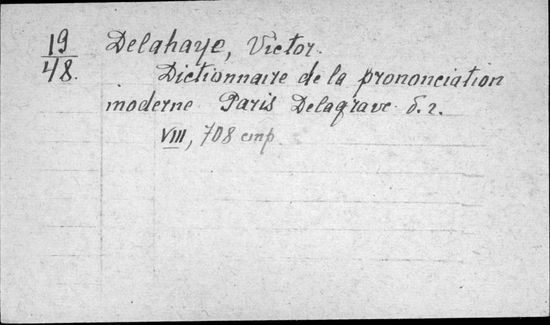 19
48.
Delahaye, Victor.
Dictionnaire de la prononciation
moderne Paris Delagrave б. г.
VIII, 708 стр.